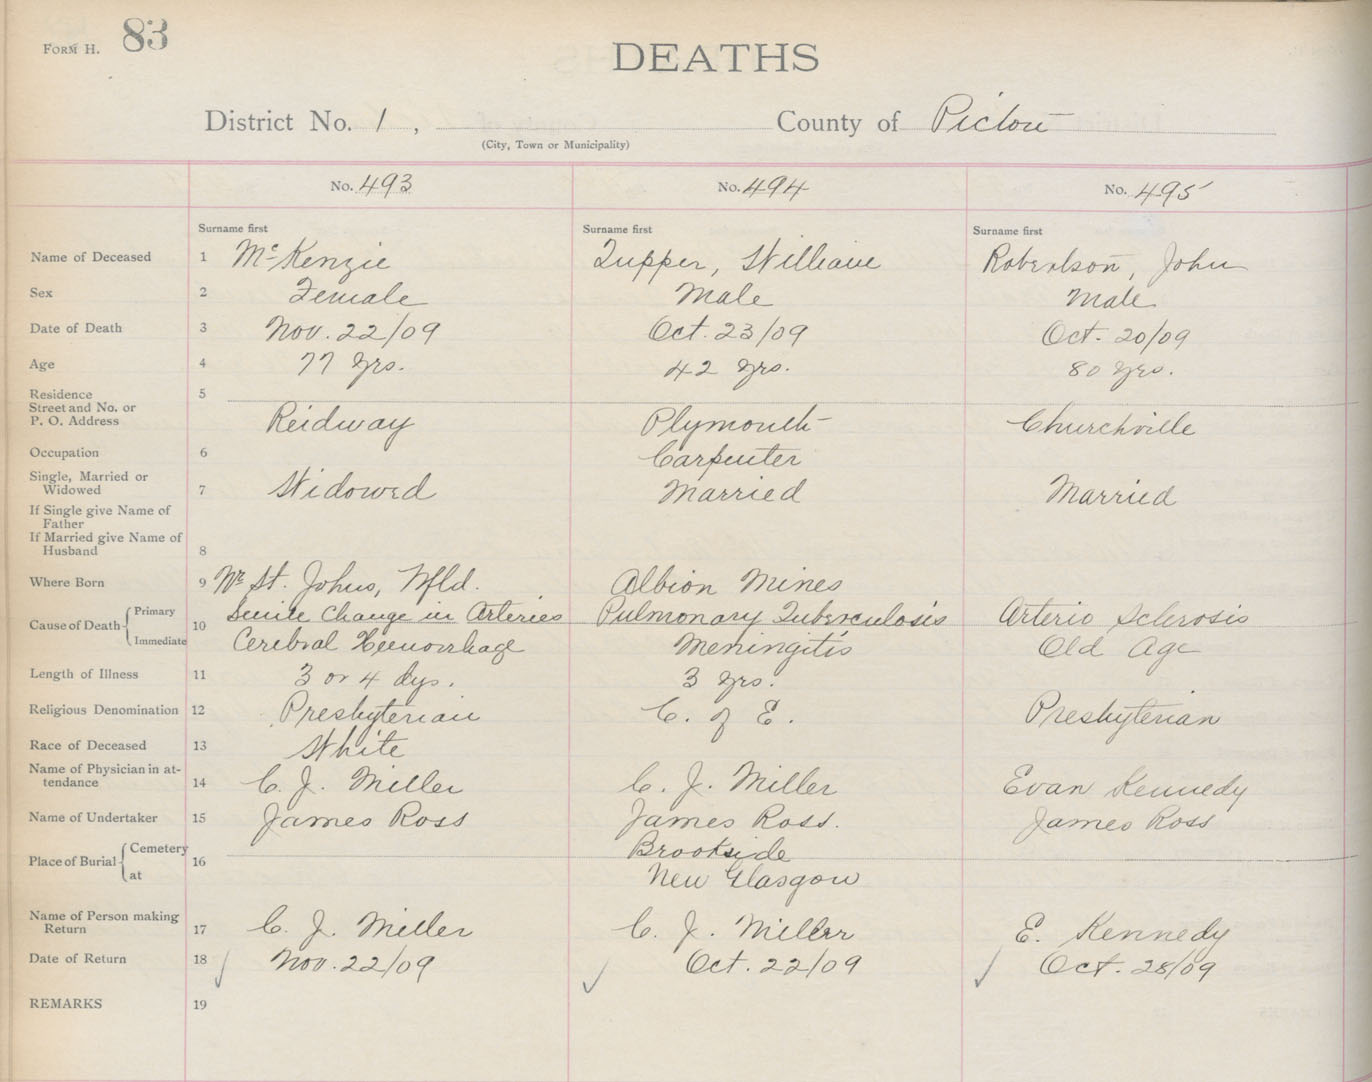 FORM H. 83
DEATHS
District No. 1 , County of Pictou
(City, Town or Municipality)
No. 493 No. 494 No. 495
Surname first Surname first Surname first
Name of Deceased 1 McKenzie Tupper, William Robertson, John
Sex 2 Female Male Male
Date of Death 3 Nov. 22/09 Oct. 23/09 Oct. 20/09
Age 4 77 yrs. 42 yrs. 80 yrs.
Residence 5
Street and No. or
P. O. Address Reidway Plymouth Churchville
Occupation 6 Carpenter
Single, Married or
Widowed 7 Widowed Married Married
If Single give Name of
Father
If Married give Name of
Husband 8
Where Born 9 Nr St. Johns, Nfld. Albion Mines
Cause of Death Primary 10 Senile Change in Arteries Pulmonary Tuberculosis Arterio Sclerosis
Immediate Cerebral Hemorrhage Meningitis Old Age
Length of Illness 11 3 or 4 dys. 3 yrs.
Religious Denomination 12 Presbyterian C. of E. Presbyterian
Race of Deceased 13 White
Name of Physician in at-
tendance 14 C. J. Miller C. J. Miller Evan Kennedy
Name of Undertaker 15 James Ross James Ross. James Ross
Place of Burial Cemetery 16 Brookside
at New Glasgow
Name of Person making
Return 17 C. J. Miller C. J. Miller E. Kennedy
Date of Return 18 Nov. 22/09 Oct. 22/09 Oct. 28/09
REMARKS 19